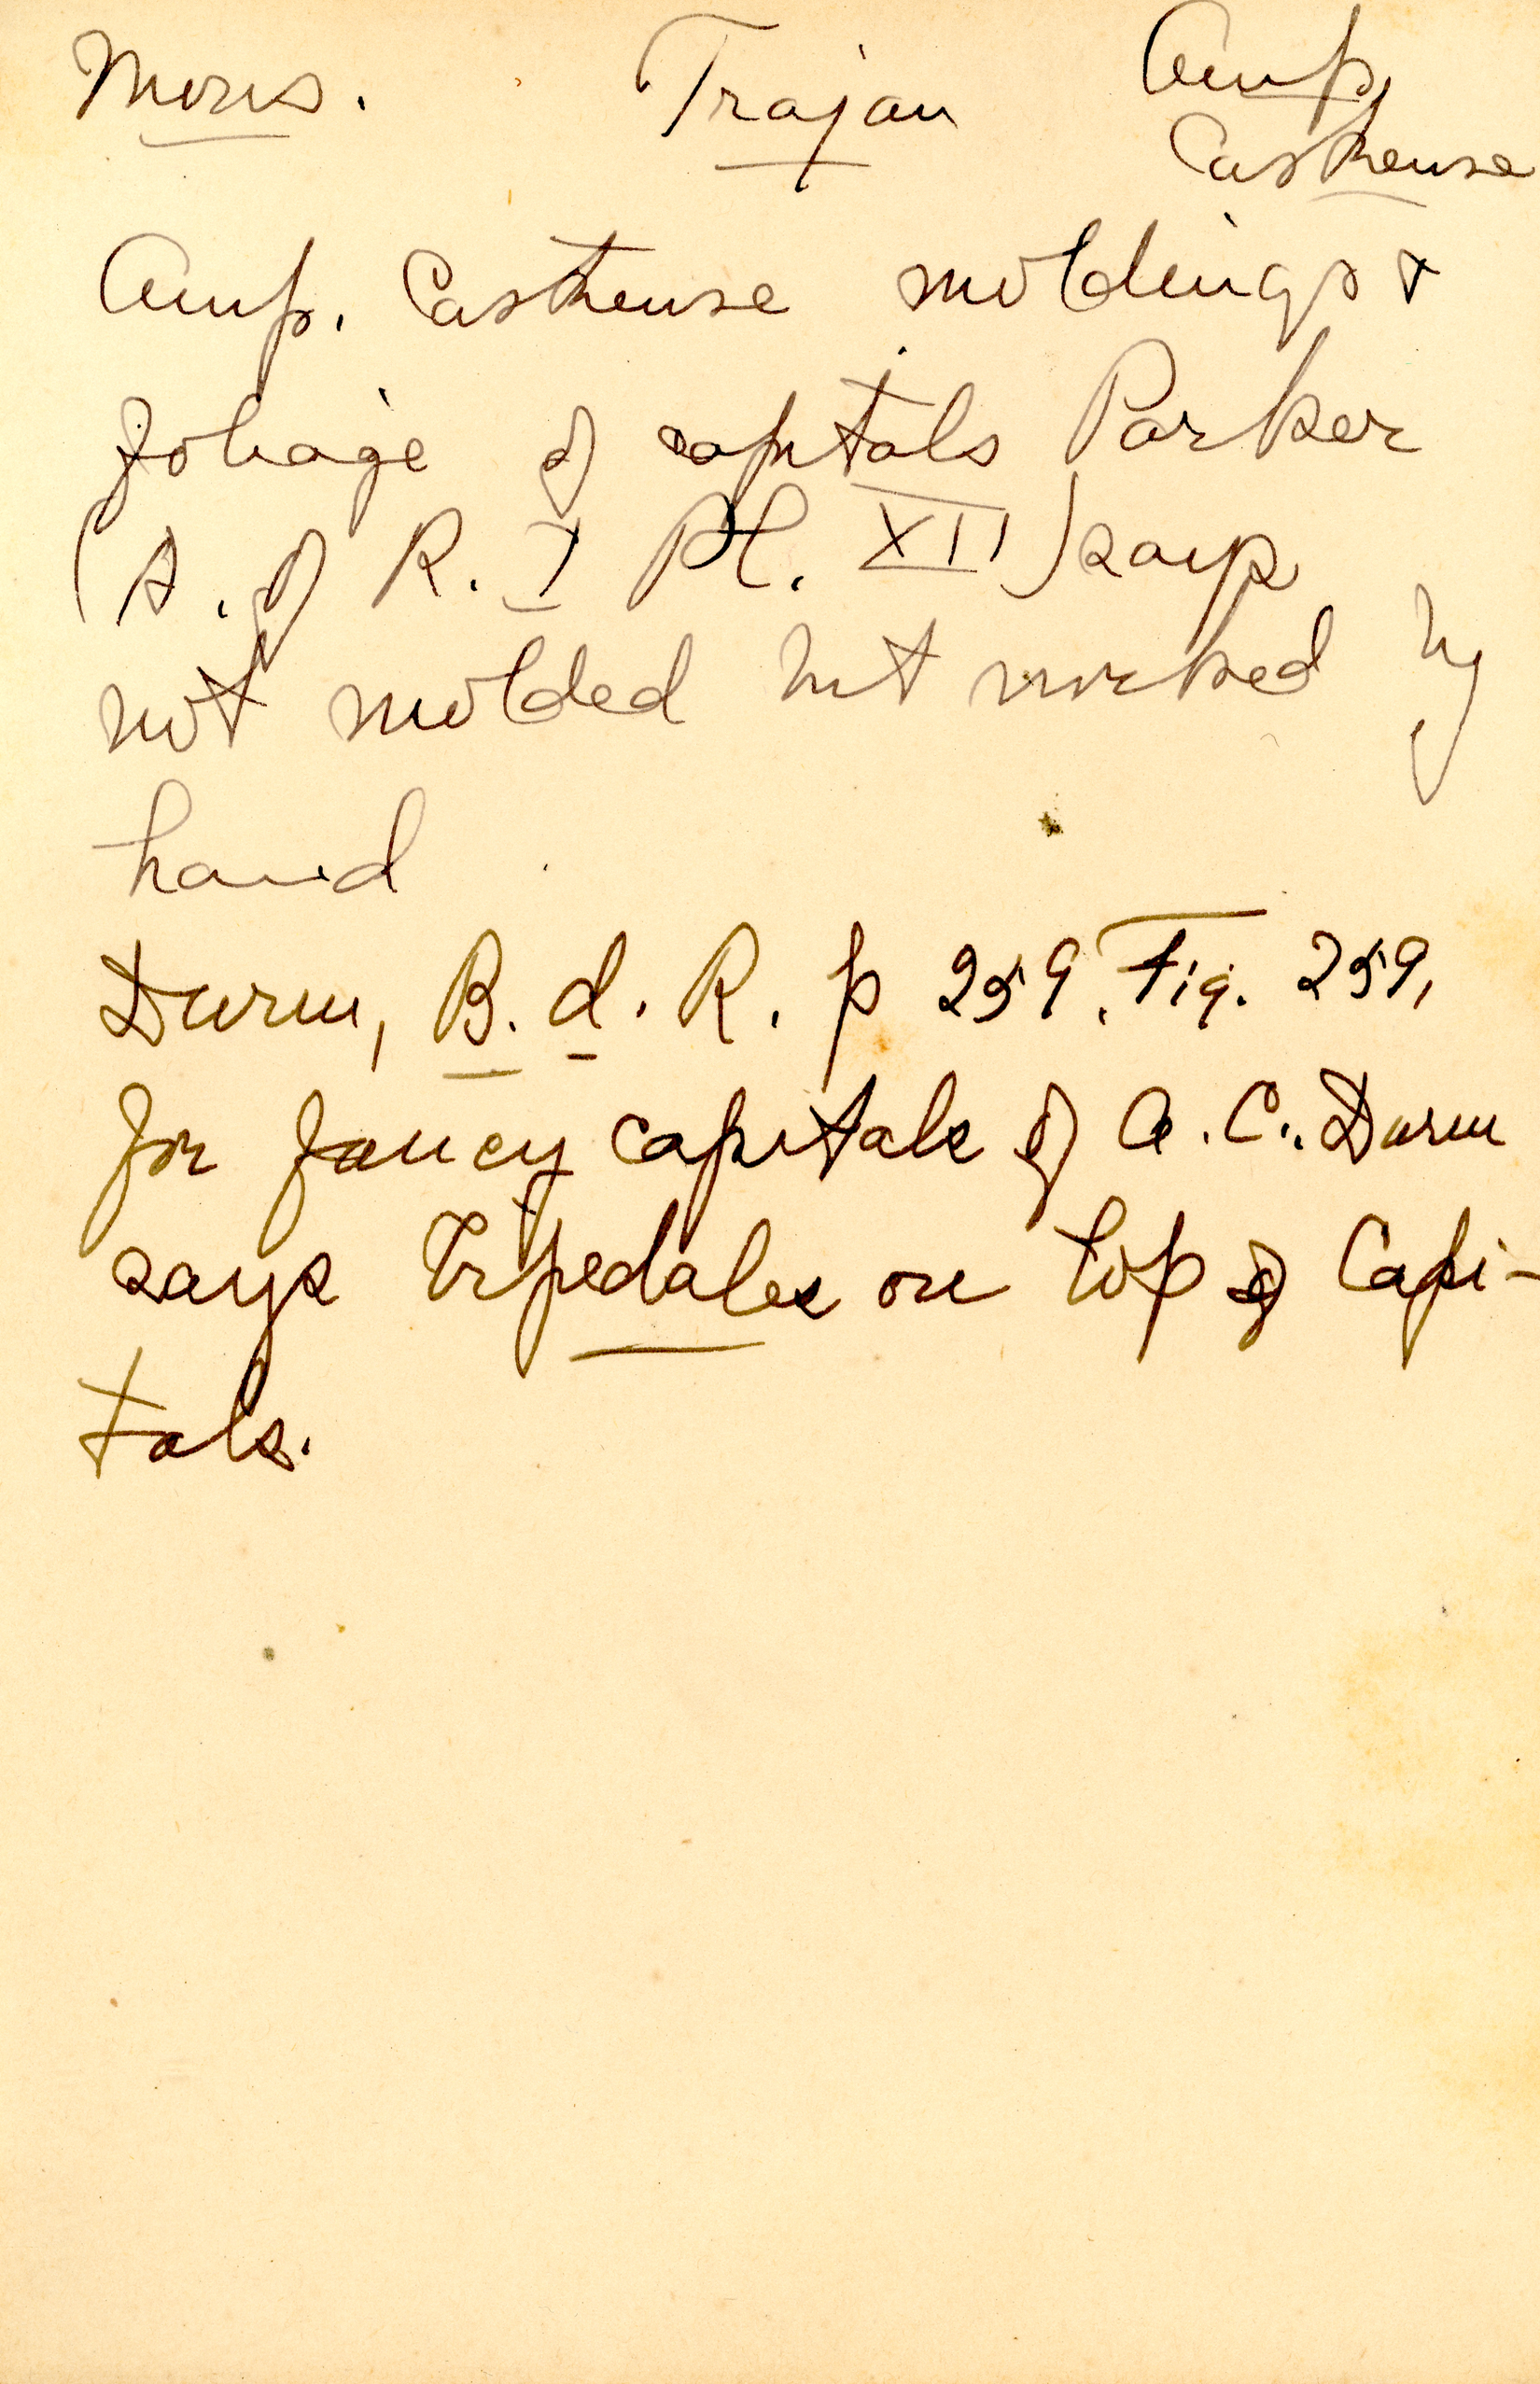 Mons. Trajan Amp.
Castrense
Amp. Castrense moldings +
foliage of capitals Parker
(A. of R. I Pl. XII) says
not molded but worked by
hand
Durm, B. d. R. p 259. Fig. 259,
for fancy capitals of A. C.. Durm
says Tripedales on top of Capi-
tals.